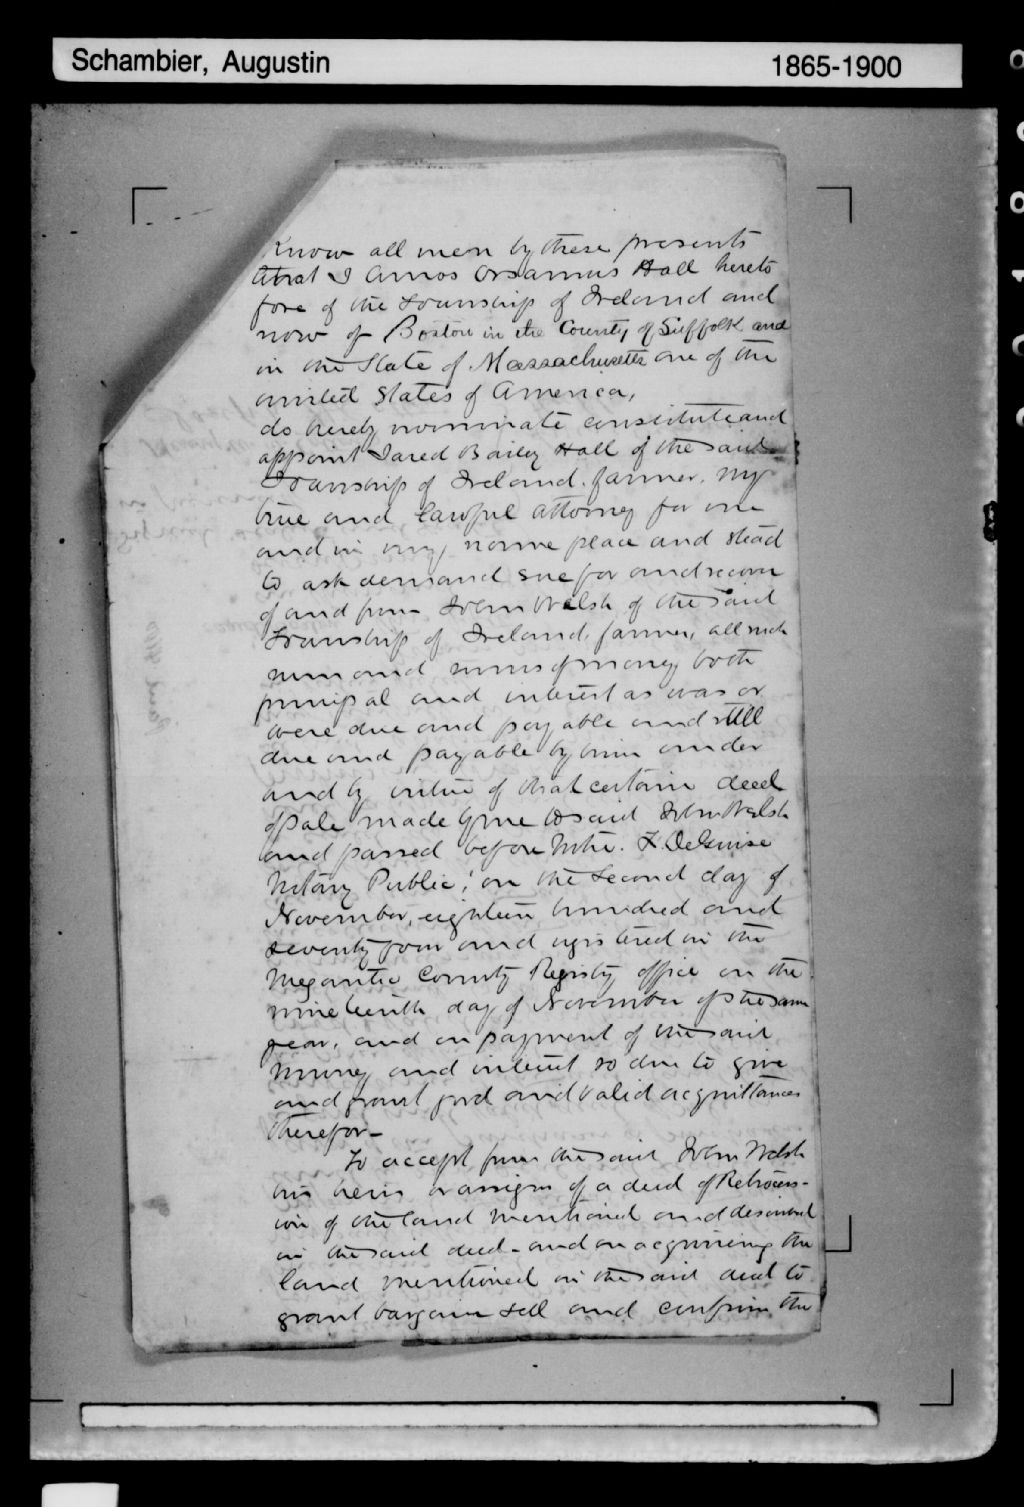 Schambier, Augustin
1865-1900
Know all men by these presents
that I Amos Orsamus Hall hereto
fore of the Township of Ireland and
now of Boston in the County of Suffolk and
in the State of Massachusetts one of the
united States of America,
do hereby nominate constitute and
appoint Jared Bailey Hall of the said
Township of Ireland. farmer. my
true and lawful attorney for me
and in my name place and stead
to ask demand sue for and recover
of and from John Welsh of the said
Township of Ireland, farmer, all such
sum and sums of money both
principal and interest as was or
were due and payable and still
due and payable by him under
and by virtue of that certain deed
of sale made by me to said John Welsh
and passed before Mtre. L. DeGuise
Notary Public, on the Second day of
November, eighteen hundred and
seventy four and registered in the
Megantic County Registry office on the
nineteenth day of November of the same
year, and on payment of the said
money and interest so due to give
and grant good and valid acquittances
therefor-
To accept from the said John Welsh
his heirs or assigns of a deed of Retrocess-
ion of the land mentioned and described
in the said deed - and on acquiring the
land mentioned in the said deed to
grant bargain sell and confirm the